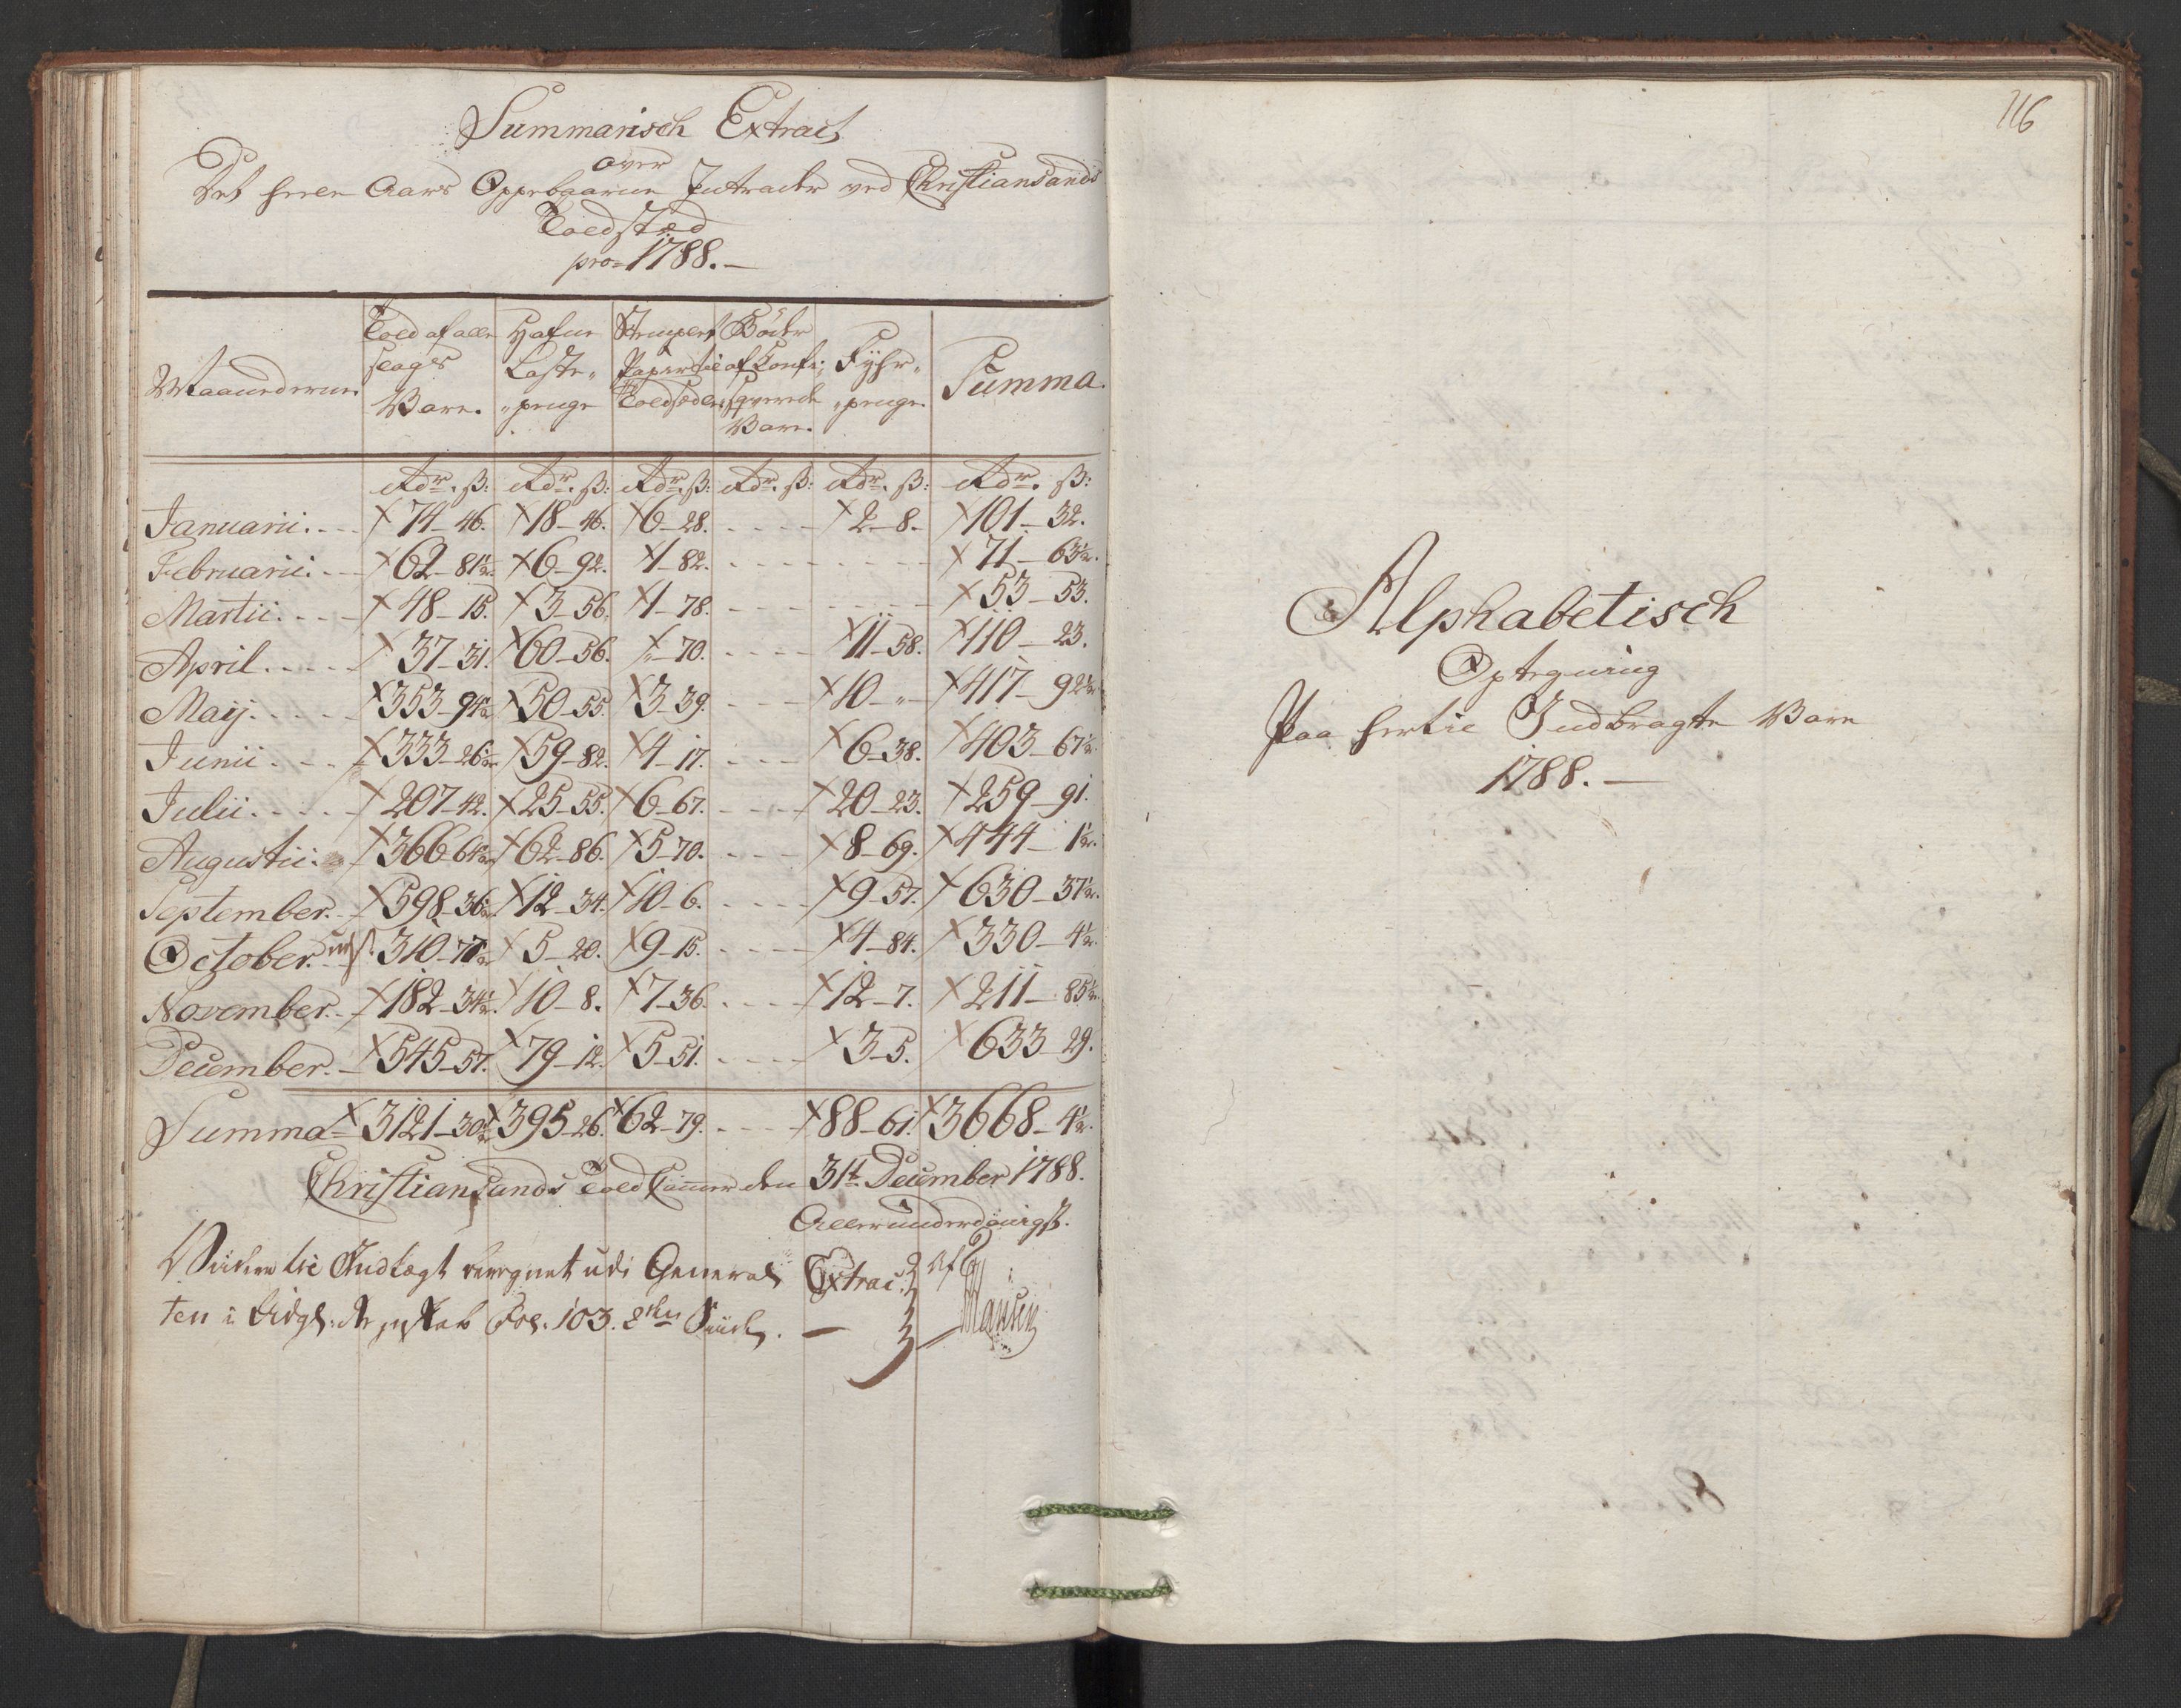 Summarisch Extract
over
Det heele Aars Oppebaarne Intrader ved Christiansands
Toldsted
pro= 1788.—
Maanederne. Told af alle Slags Vare. Hafne Laste„ „penge Stemplet Papir til Toldsedler Böder af Confi: sqverede Vare. Fyhr„ „penge. Summa.
Rdr. ß: Rdr. ß: Rdr. ß: Rdr. ß: Rdr. ß: Rdr. ß:
Januarii. 74-46. 18-46. 6-28. 2-8. 101-32.
Februarii. 62-81½. 6-92. 1-82. 71-63½.
Martii. 48-15. 3-56. 1-78. 53-53.
April. 37-31. 60-56. „-70. 11-58. 110-23.
Maij. 353-94½ 50-55. 3-39. 10-„- 417-92½
Junii. 333-26½ 59-82. 4-17. 6-38. 403-67½.
Julii. 207-42. 25-55. 6-67. 20-23. 259-91.
Augustii. 366-64½ 62-86. 5-70. 8-69. 444-1½.
September. 598-36½ 12-34. 10-6. 9-57. 630-37½.
October. 310-77½ 5-20. 9-15. 4-84. 330-4½.
November. 182-34½. 10-8. 7-36. 12-7. 211-85½.
December. 545-57. 79-12. 5-51. 3-5. 633-29.
Summa= 3121-30½ 395-26. 62-79. 88-61. 3668-4½.
Christiansands Told Cammer den 31t. December 1788.
Allerunderdanigst.
til Indtægt beregnet udi General Extrac: af
ten i Regnskab Fol. 103. 2den Siide.
116
Alphabetisch
Optegning
Paa hertil Indbragte Vare
1788.—